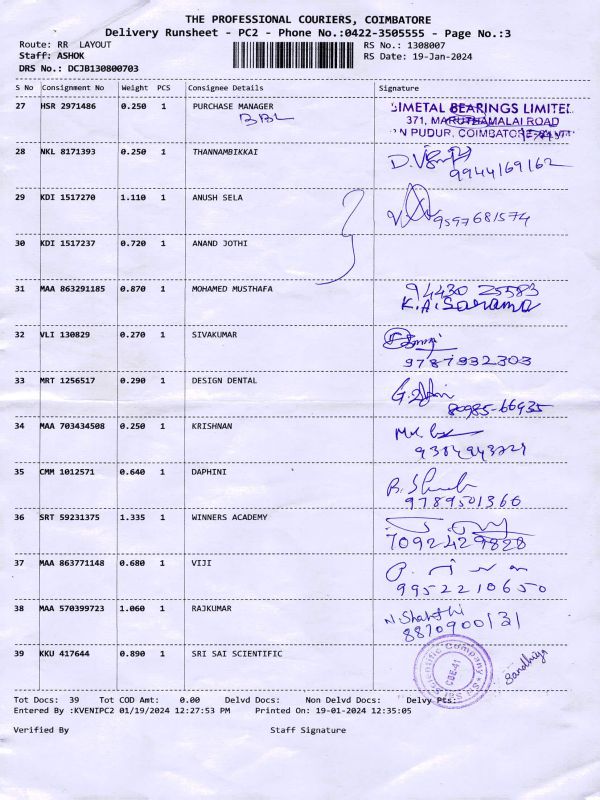 THE PROFESSIONAL COURIERS, COIMBATORE
Delivery Runsheet - PC2 - Phone No.:0422-3505555 - Page No.:3
Route: RR LAYOUT RS No.: 1308007
Staff: ASHOK RS Date: 19-Jan-2024
DRS No.: DCJB130800703
S No Consignment No Weight PCS Consignee Details Signature
27 HSR 2971486 0.250 1 PURCHASE MANAGER
BBL
BIMETAL BEARINGS LIMITED
371, MARUTHAMALAI ROAD
N PUDUR, COIMBATORE
28 NKL 8171393 0.250 1 THANNAMBIKKAI
9944169162
29 KDI 1517270 1.110 1 ANUSH SELA
9597681574
30 KDI 1517237 0.720 1 ANAND JOTHI
31 MAA 863291185 0.870 1 MOHAMED MUSTHAFA 94430 25583
K.A.
32 VLI 130829 0.270 1 SIVAKUMAR
9787932303
33 MRT 1256517 0.290 1 DESIGN DENTAL
80985-66935
34 MAA 703434508 0.250 1 KRISHNAN
35 CMM 1012571 0.640 1 DAPHINI
9789501366
36 SRT 59231375 1.335 1 WINNERS ACADEMY
7092429828
37 MAA 863771148 0.680 1 VIJI
9952210650
38 MAA 570399723 1.060 1 RAJKUMAR N Shakthi
8870900131
39 KKU 417644 0.890 1 SRI SAI SCIENTIFIC Scientific Company CBE-41 Sandhiya
Tot Docs: 39 Tot COD Amt: 0.00 Delvd Docs: Non Delvd Docs: Delvy Pts:
Entered By :KVENIPC2 01/19/2024 12:27:53 PM Printed On: 19-01-2024 12:35:05
Verified By Staff Signature